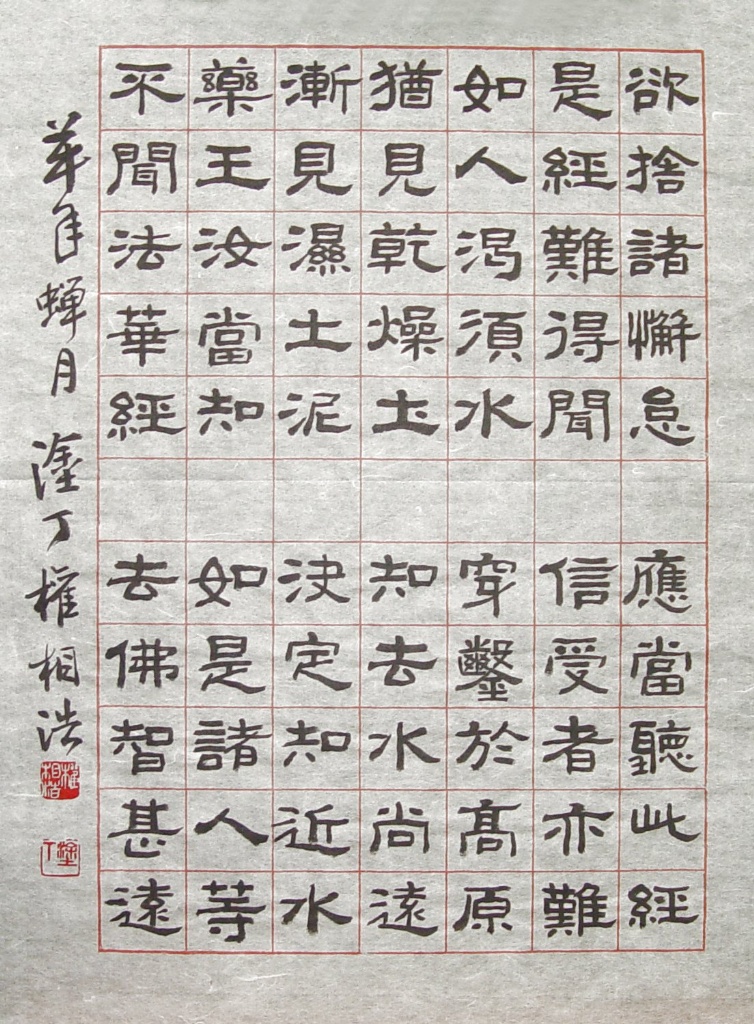 欲捨諸懈怠 應當聽此經
是經難得聞 信受者亦難
如人渴須水 穿鑿於髙原
猶見乾燥土 知去水尚遠
漸見濕土泥 決定知近水
藥王汝當知 如是諸人等
不聞法華經 去佛智甚遠
羊年蟬月 塗丁權相浩
權相浩
塗丁